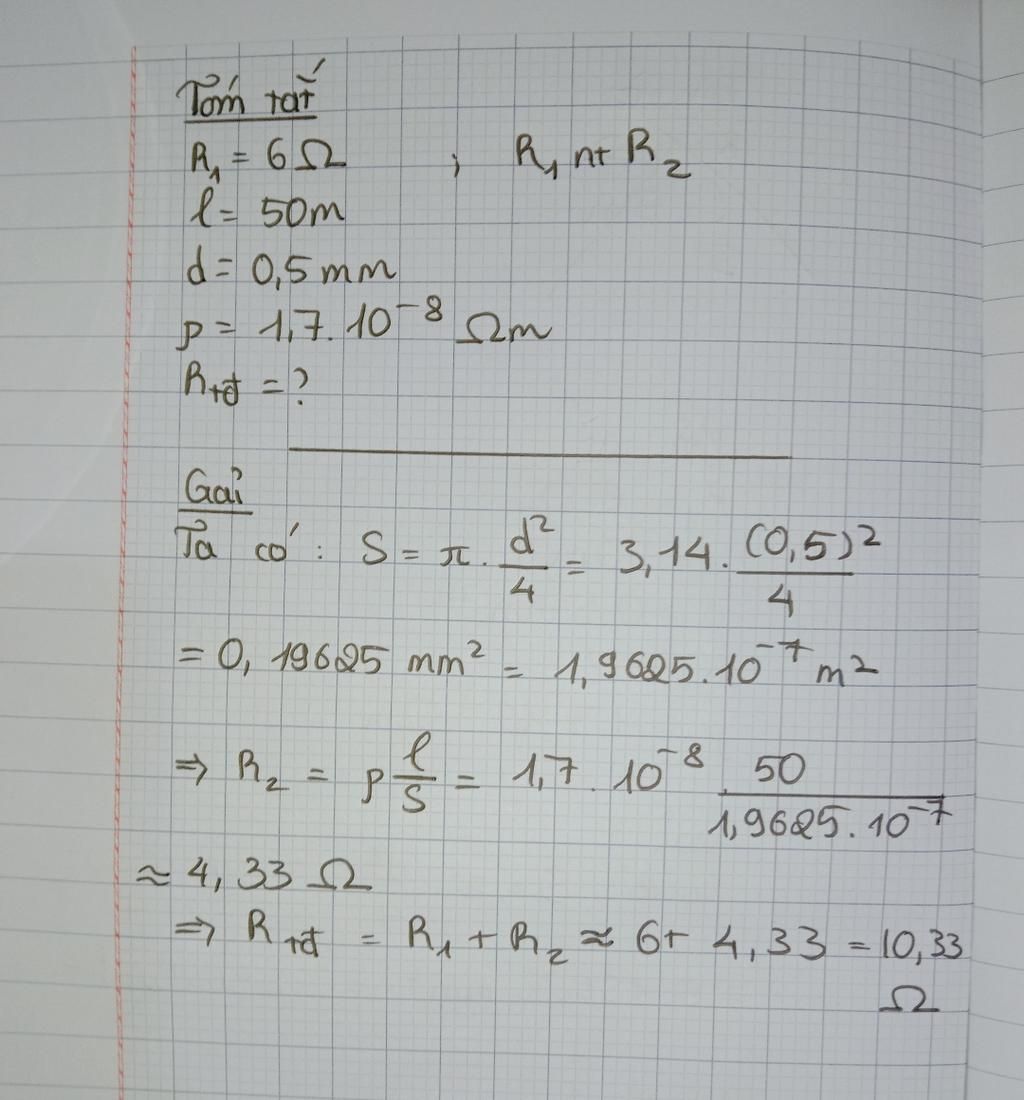 Tóm tắt
R₁ = 6 Ω ; R₁ nt R₂
l = 50m
d = 0,5 mm
ρ = 1,7. 10⁻⁸ Ωm
Rtđ = ?
Gải
Ta có : S = π . d²/4 = 3,14. (0,5)²/4
= 0, 19625 mm² = 1,9625. 10⁻⁷ m²
⇒ R₂ = ρ l/S = 1,7 . 10⁻⁸ . 50/1,9625. 10⁻⁷
≈ 4, 33 Ω
⇒ Rtđ = R₁ + R₂ ≈ 6+ 4,33 = 10,33
Ω